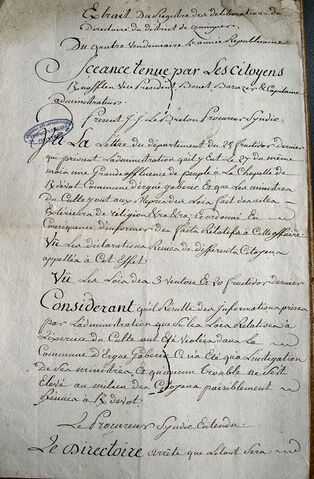 Extrait Du Registre des deliberations du
Directoire du district de quimper
Du quatre Vendemiaire 4e année Republicaine
Sceance tenue par Les Citoyens
Vice President, Bonet, Derazer & Capitaine
administrateurs
Present J. f. Le Breton Procureur Syndic
Vu La Lettre du departement du 28 fructidor dernier
qui previent Ladministration qu'il y eut Le 27 du même
mois une Grande affluence de peuple à La Chapelle de
Kdévot Commune d'ergue gaberic Et que les ministres
du Culte y ont aux Mepris des Loix fait des actes
Exterieurs de religion Ordonné En
Consequence d'informer des faits Relatifs à Cette affaire
Vu Les declarations Remises de differents Citoyens
appellés à Cet Effet.
Vu Les Loix des 3 ventose Et 20 fructidor dernier
Considerant qu'il Resulte des Informations prises
par Ladministration que Si les Loix Relatives à
L'exercice du Culte ont Eté violées dans La
Commune d'Ergue Gaberic Ce n'a été qu'a L'instigation
de Ses ministres, Et qu'aucun trouble ne Seit
Elevé au milieu des Citoyens paisiblement
Reunis à Kdevot.
Le Procureur Syndic Entendu
Le Directoire arrête que Le tout Sera